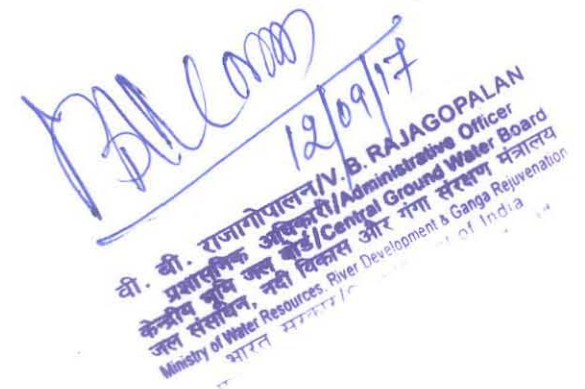 12/09/17
वी. बी. राजागोपालन/V. B. RAJAGOPALAN
प्रशासनिक अधिकारी/Administrative Officer
केन्द्रीय भूमि जल बोर्ड/Central Ground Water Board
जल संसाधन, नदी विकास और गंगा संरक्षण मंत्रालय
Ministry of Water Resources, River Development & Ganga Rejuvenation
भारत सरकार/ of India